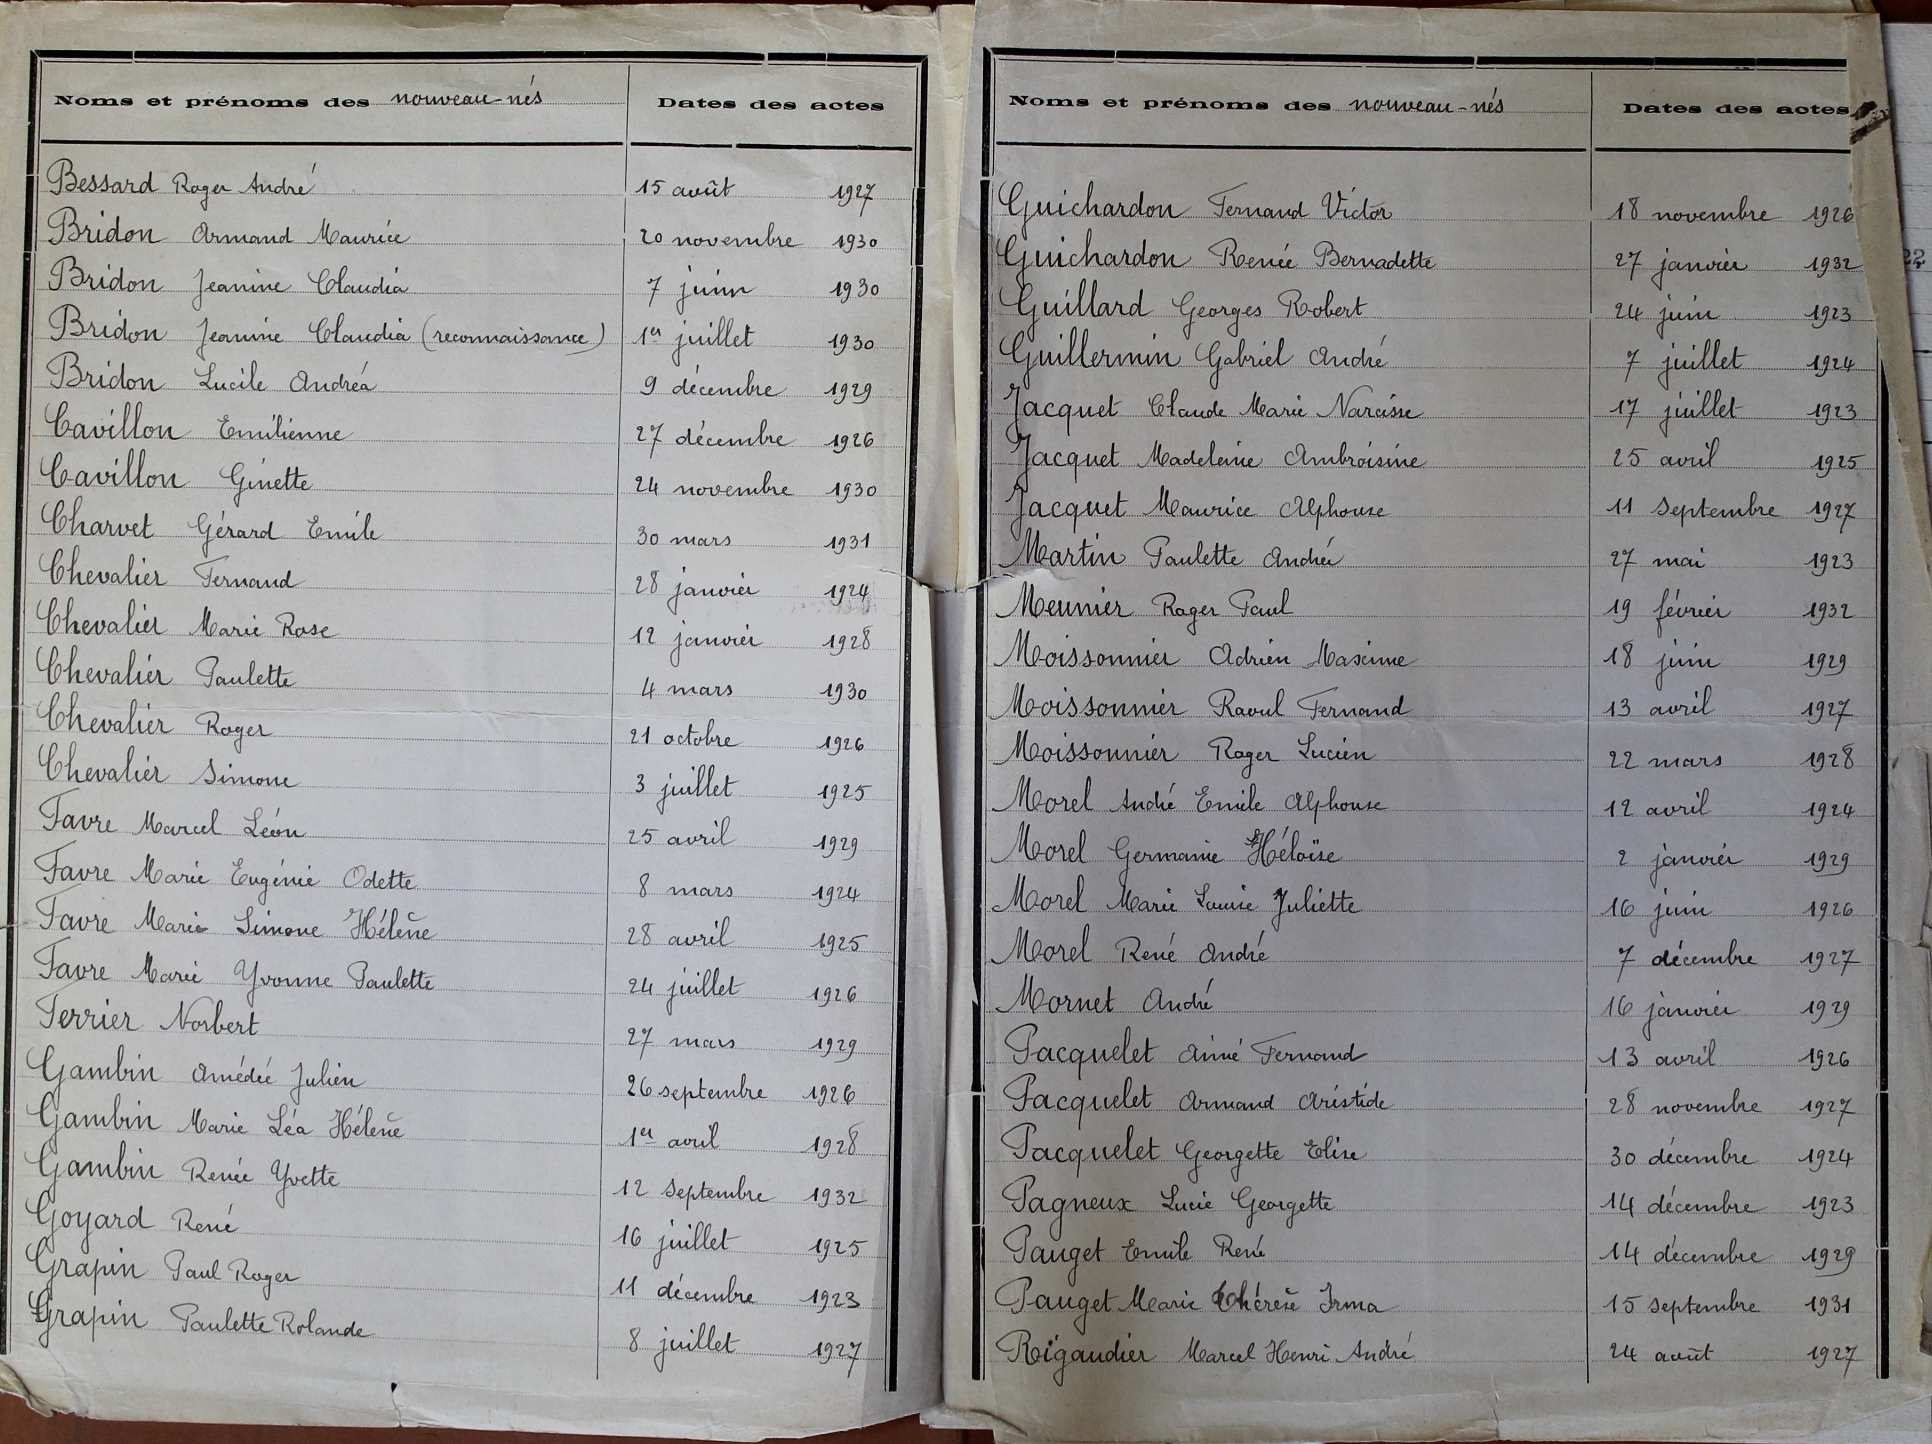 Noms et prénoms des nouveau-nés Dates des actes
Bessard Roger André 15 août 1927
Bridon Armand Maurice 20 novembre 1930
Bridon Jeanine Claudia 7 juin 1930
Bridon Jeanine Claudia (reconnaissance) 1er juillet 1930
Bridon Lucile Andréa 9 décembre 1929
Cavillon Emilienne 27 décembre 1926
Cavillon Ginette 24 novembre 1930
Charvet Gérard Emile 30 mars 1931
Chevalier Fernand 28 janvier 1924
Chevalier Marie Rose 12 janvier 1928
Chevalier Paulette 4 mars 1930
Chevalier Roger 21 octobre 1926
Chevalier Simone 3 juillet 1925
Favre Marcel Léon 25 avril 1929
Favre Marie Eugénie Odette 8 mars 1924
Favre Marie Simone Hélène 28 avril 1925
Favre Marie Yvonne Paulette 24 juillet 1926
Ferrier Norbert 27 mars 1929
Gambin Amédée Julien 26 septembre 1926
Gambin Marie Léa Hélène 1er avril 1928
Gambin Renée Yvette 12 septembre 1932
Goyard René 16 juillet 1925
Grapin Paul Roger 11 décembre 1923
Grapin Paulette Rolande 8 juillet 1927
Noms et prénoms des nouveau-nés Dates des actes
Guichardon Fernand Victor 18 novembre 1926
Guichardon Renée Bernadette 27 janvier 1932
Guillard Georges Robert 24 juin 1923
Guillermin Gabriel André 7 juillet 1924
Jacquet Claude Marie Narcisse 17 juillet 1923
Jacquet Madeleine Ambroisine 25 avril 1925
Jacquet Maurice Alphonse 11 septembre 1927
Martin Paulette Andrée 27 mai 1923
Meunier Roger Paul 19 février 1932
Moissonnier Adrien Maxime 18 juin 1929
Moissonnier Raoul Fernand 13 avril 1927
Moissonnier Roger Lucien 22 mars 1928
Morel André Emile Alphonse 12 avril 1924
Morel Germanie Héloïse 2 janvier 1929
Morel Marie Louise Juliette 16 juin 1926
Morel René André 7 décembre 1927
Mornet André 16 janvier 1929
Pacquelet Aimé Fernand 13 avril 1926
Pacquelet Armand Aristide 28 novembre 1927
Pacquelet Georgette Elise 30 décembre 1924
Pagneux Lucie Georgette 14 décembre 1923
Pauget Emile René 14 décembre 1929
Pauget Marie Thérèse Irma 15 septembre 1931
Rigaudier Marcel Henri André 24 août 1927